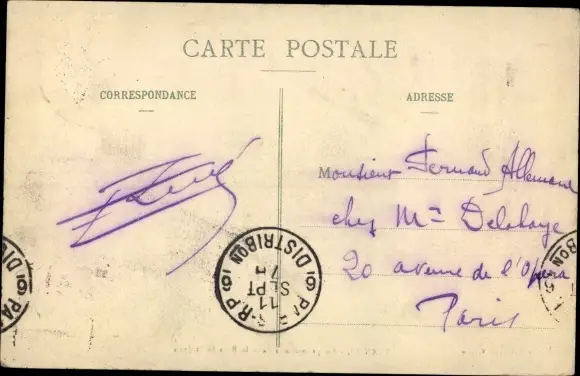 CARTE POSTALE
CORRESPONDANCE
ADRESSE
Monsieur Fernand Allemane
chez Mme Delahaye
20 avenue de l'Opéra
Paris
DISTRIBON
11
SEPT